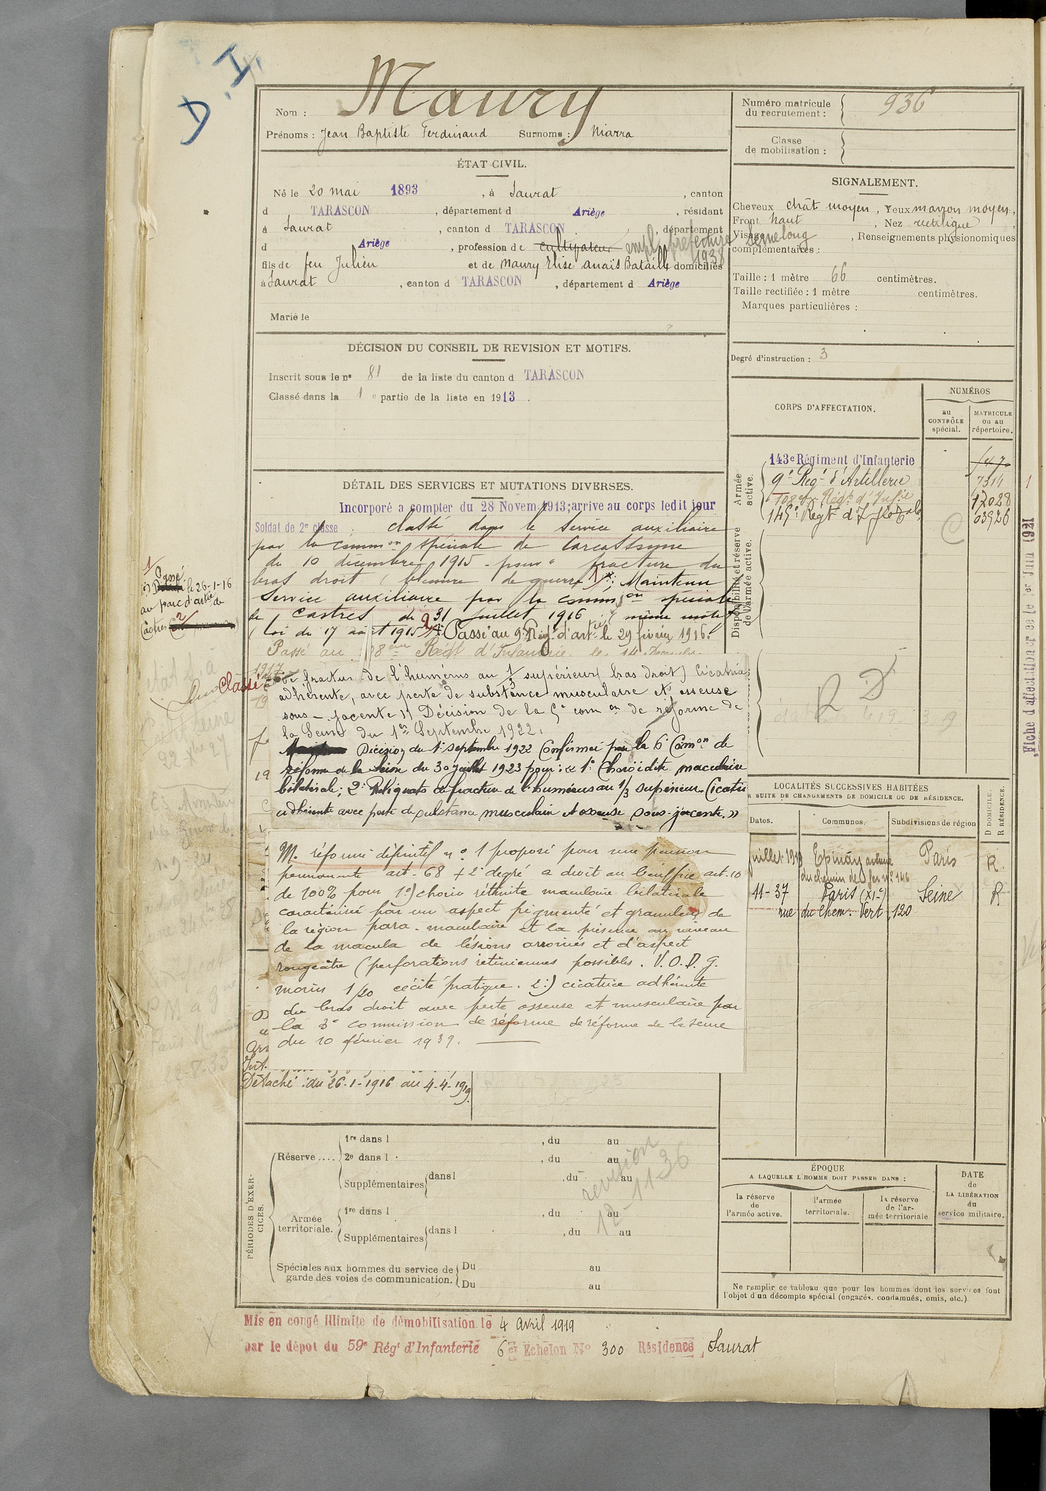 D. I.
Nom : Maury
Prénoms : Jean Baptiste Ferdinand Surnoms : Niarra
Numéro matricule du recrutement : 936
Classe de mobilisation :
ÉTAT CIVIL.
Né le 20 mai 1893, à Saurat, canton
d TARASCON, département d Ariège, résidant
à Saurat, canton d TARASCON, département
d Ariège, profession de cultivateur empl. préfecture 1938
fils de feu Julien et de Maury Elise Anaïs Bataille domiciliés
à Saurat, canton d TARASCON, département d Ariège
Marié le
SIGNALEMENT.
Cheveux chât moyen, Yeux marron moyen,
Front haut, Nez rectiligne
Visage long, Renseignements physionomiques
complémentaires :
Taille : 1 mètre 66 centimètres.
Taille rectifiée : 1 mètre centimètres.
Marques particulières :
Degré d'instruction : 3
DÉCISION DU CONSEIL DE REVISION ET MOTIFS.
Inscrit sous le n° 81 de la liste du canton d TARASCON
Classé dans la 1e partie de la liste en 1913.
CORPS D'AFFECTATION.
NUMÉROS
au CONTRÔLE spécial.
MATRICULE ou au répertoire.
Armée active.
143e Régiment d'Infanterie
9e Reg. d'Artillerie 7311
Regt. d'Infie 12028
143e Regt d'Inf 03926
Disponibilité et réserve de l'armée active.
R D
DÉTAIL DES SERVICES ET MUTATIONS DIVERSES.
Incorporé à compter du 28 Novem 1913; arrive au corps ledit jour
Soldat de 2e classe. classé dans le service auxiliaire
par la common spéciale de Carcassonne
du 10 décembre 1915 pour « fracture du
bras droit (blessure de guerre) ». Maintenu
service auxiliaire par la commion spéciale
de Castres du 31 juillet 1916 même motif
(Loi du 17 août 1915) Passé au 9e Rég. d'artie le 29 février 1916.
Passé au Regt d'Infanterie le
1) Passé le 26-1-16
au parc d'artie de
Castres
Classé
de fracture de l'humérus au 1/3 supérieur (bras droit) cicatrice
adhérente, avec perte de substance musculaire et osseuse
sous-jacente » Décision de la 5e comon de réforme de
la Seine du 1er Septembre 1922.
Décision du 1er septembre 1922 Confirmée par la 6e Comon de
réforme de la Seine du 30 juillet 1923 pour : « 1° Choroïdite maculaire
bilatérale; 2° Reliquats de fracture de l'humérus au 1/3 supérieur. Cicatrice
adhérente avec perte de substance musculaire et osseuse sous-jacente. »
M. réformé définitif n° 1 proposé pour une pension
permanente art. 68 + 2e degré a droit au bénéfice art. 10
de 100% pour 1°) chorio rétinite maculaire bilatérale
caractérisée par un aspect pigmenté et granuleux de
la région para-maculaire et la présence au niveau
de la macula de lésions arrondies et d'aspect
rougeâtre (perforations rétiniennes possibles. V.O.D.G.
moins 1/20 cécité pratique. 2°) cicatrice adhérente
du bras droit avec perte osseuse et musculaire par
la 3e commission de réforme de réforme de la Seine
du 10 février 1939.
Détaché : du 26-1-1916 au 4-4-1919
Fiche d'affectation créée le 1er Juin 1921
LOCALITÉS SUCCESSIVES HABITÉES
PAR SUITE DE CHANGEMENTS DE DOMICILE OU DE RÉSIDENCE.
Dates. Communes. Subdivisions de région D DOMICILE. R RÉSIDENCE.
juillet Epinay Paris R
du chemin de fer n° 146
11-37 Paris (XIe) Seine R
rue du Chem. Vert 120
PÉRIODES D'EXERCICES.
Réserve.... 1re dans l , du au
2e dans l , du au
Supplémentaires dans l , du au
Armée territoriale. 1re dans l , du au
Supplémentaires dans l , du au
Spéciales aux hommes du service de garde des voies de communication. Du au
Du au
revision
12-11-36
ÉPOQUE
A LAQUELLE L'HOMME DOIT PASSER DANS :
la réserve de l'armée active.
l'armée territoriale.
la réserve de l'armée territoriale
DATE de LA LIBÉRATION du service militaire.
Ne remplir ce tableau que pour les hommes dont les services font
l'objet d'un décompte spécial (engagés, condamnés, omis, etc.)
Mis en congé illimité de démobilisation le 4 Avril 1919
par le dépot du 59e Régt d'Infanterie 6e Echelon N° 300 Résidence Saurat